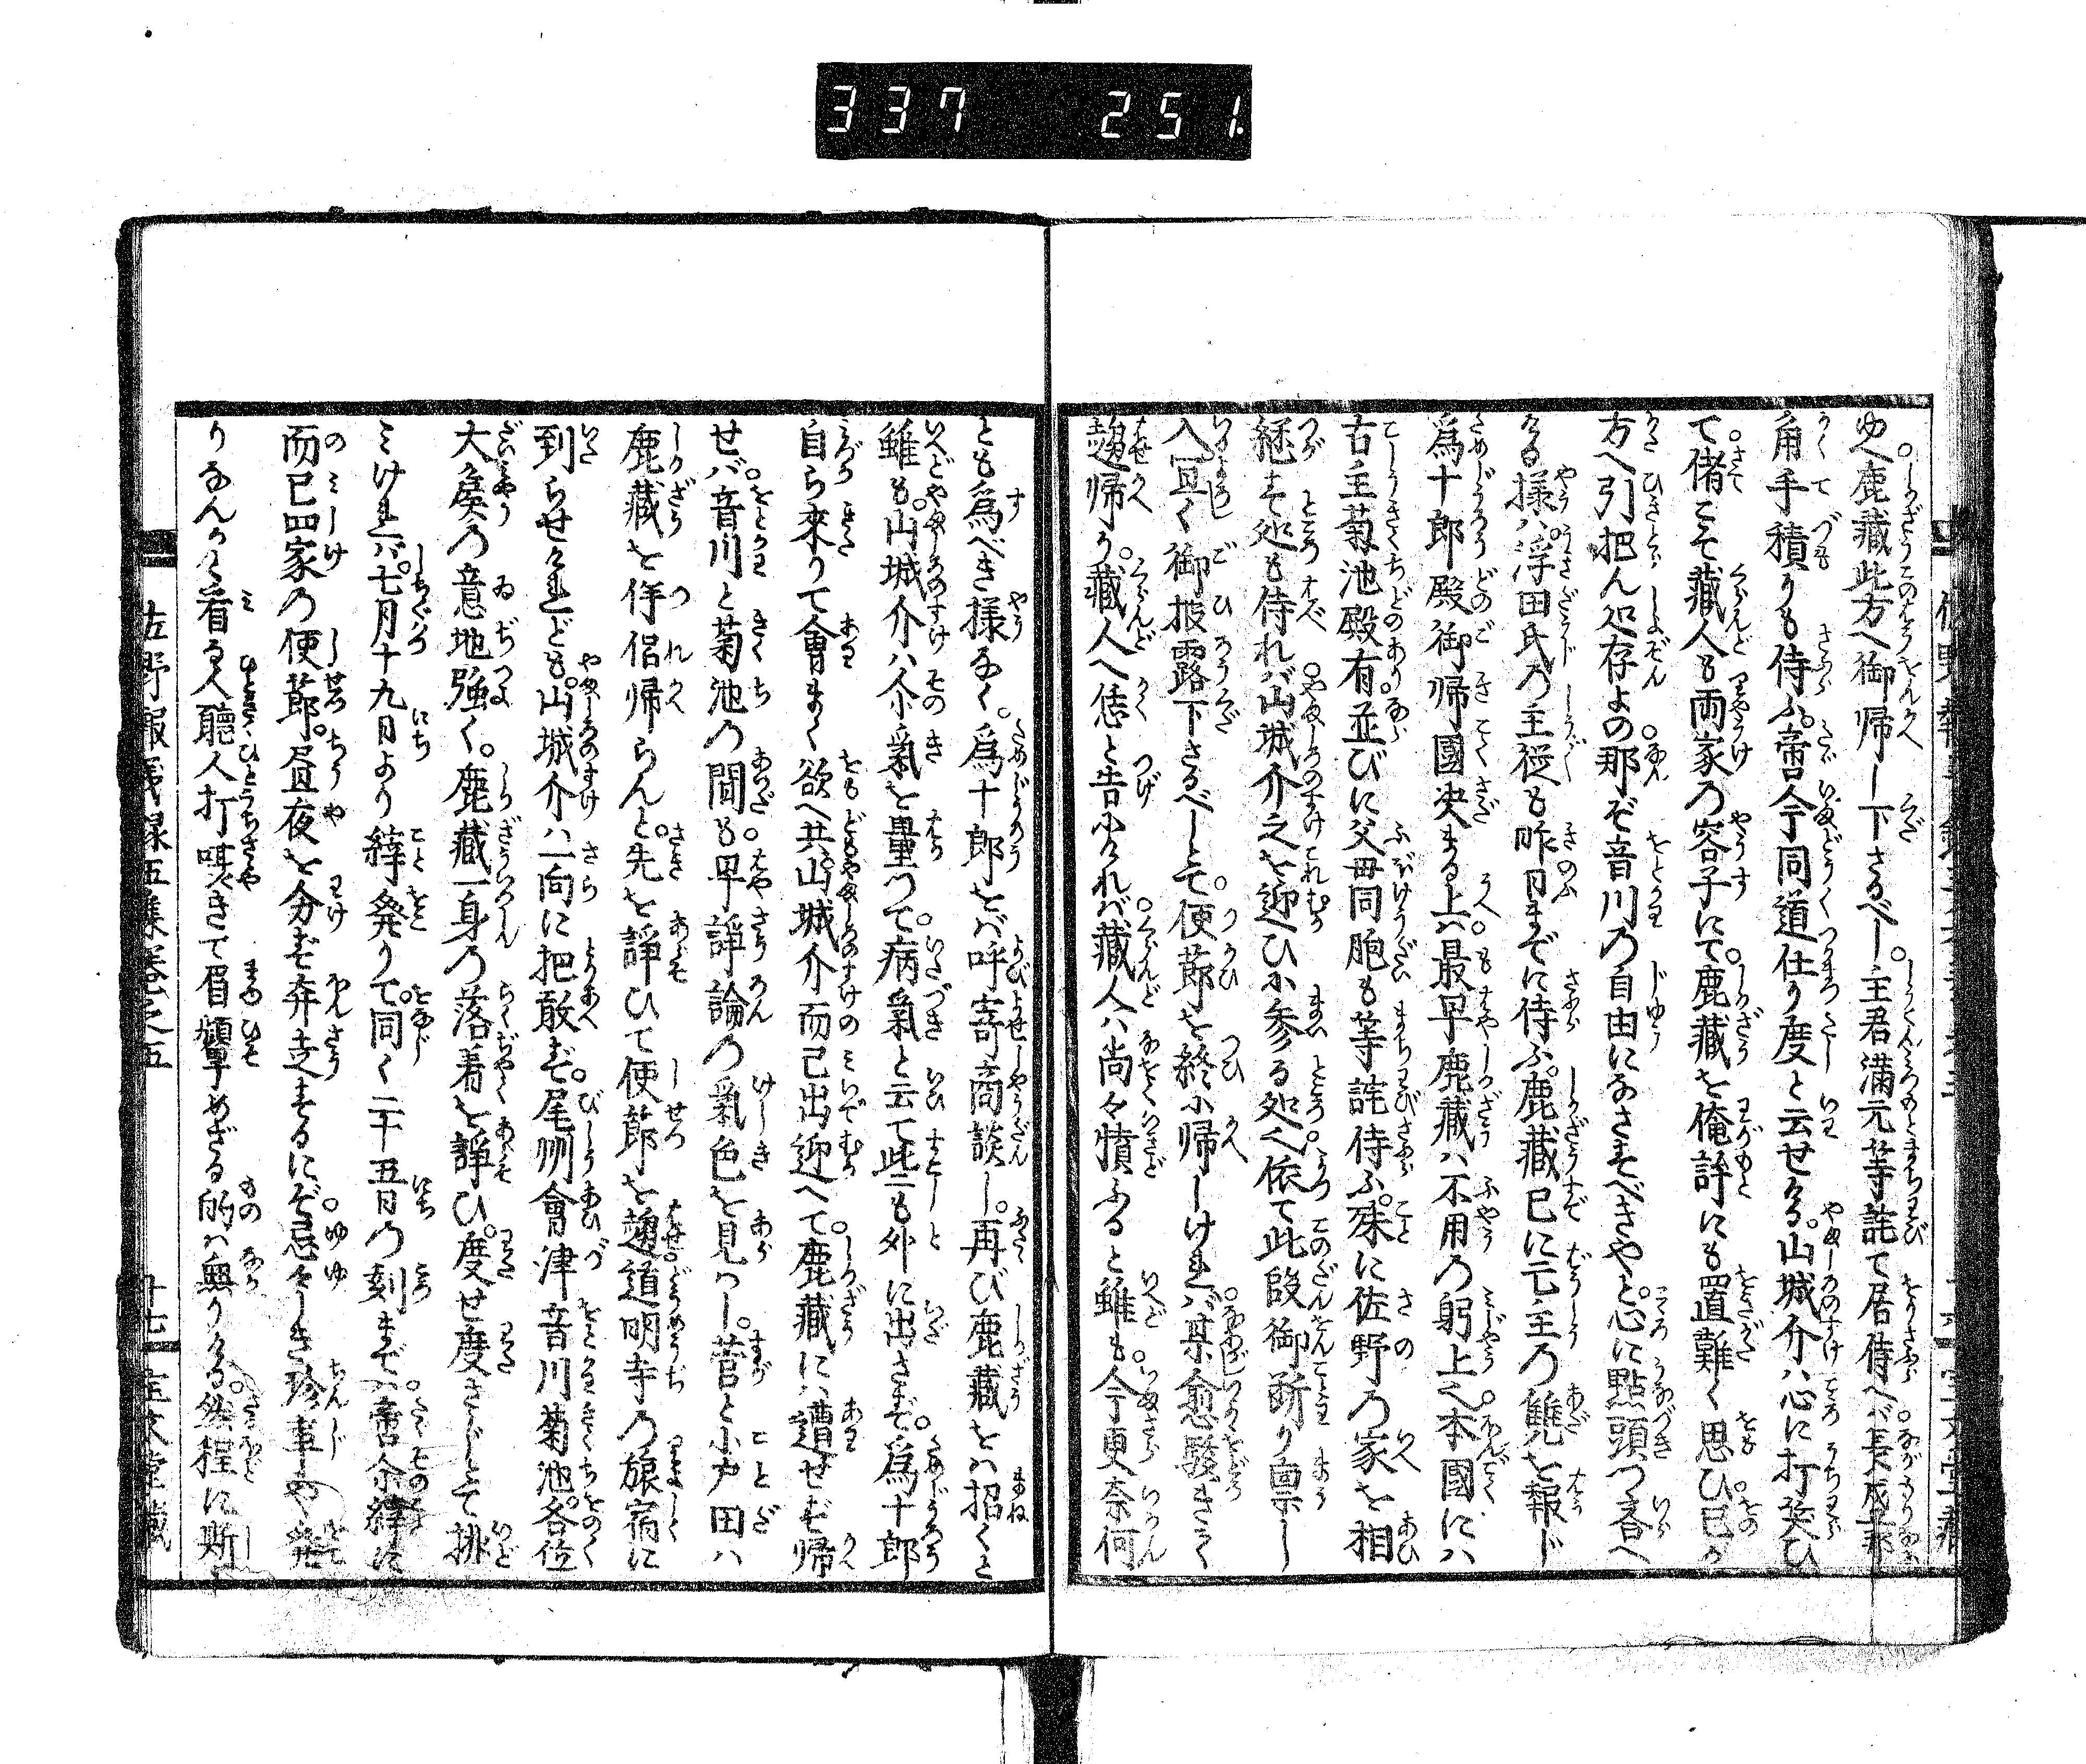 337 251.
ゆへ鹿藏此方へ御帰し下さるべし。主君満元等詫て居侍へバ長成
角手積りも侍ふ。啻今同道仕り度と云せける。山城介ハ心に打笑ひ
て偖こそ藏人も両家乃容子にて。鹿藏を俺許にも置難く思ひ。己が
方へ引把ん処存よの那ぞ音川乃自由になさすべきやと。心に點頭つ荅へ
ける様ハ。浮田氏乃主従も昨日までに侍ふ。鹿藏已に元主乃讐を報じ
爲十郎殿御帰國决まる上ハ。最早鹿藏ハ不用乃躬上也。本國にハ
古主菊池殿有。並びに父母同胞も等詫侍ふ。殊に佐野乃家を相
続すべき処も侍れバ。山城介之を迎ひに参る処也。依て此段御断り禀し
入。宜く御披露下さるべしとて。便節を終に帰しけれバ。某愈駭きて
趨帰り。藏人へ恁と告ぐれバ。藏人ハ尚々憤ふると雖も。今更奈何
とも爲べき様なく。爲十郎をバ呼寄商談し。再び鹿藏をハ招くと
雖も。山城介ハ人の氣を量つて。病氣と云て些も外に出さず。爲十郎
自ら來りて會まく欲へ共。山城介而已出迎へて。鹿藏にハ遭せず帰
せバ。音川と菊池の間も早諍論乃氣色を見ハし。菅と小戸田ハ
鹿藏を伴侶帰らんと。先を諍ひて使節を趨。道明寺乃旅宿に
到らせけれども。山城介ハ一向に把敢ず。尾州會津音川菊池。各位
大矦乃意地強く。鹿藏一身乃落着を諍ひ。度せ度さじとて挑
ミけれバ。七月十九日より縡發りて。同く二十五日乃刻まで。啻余縡に
而已四家の使節。昼夜を分ず奔走するにぞ。忌々しき珍事や発
りなんかと。看る人聽人打咡きて眉顰めざる的ハ無りける。然程に斯
佐野報義録五集巻之五
十七
宝文堂藏